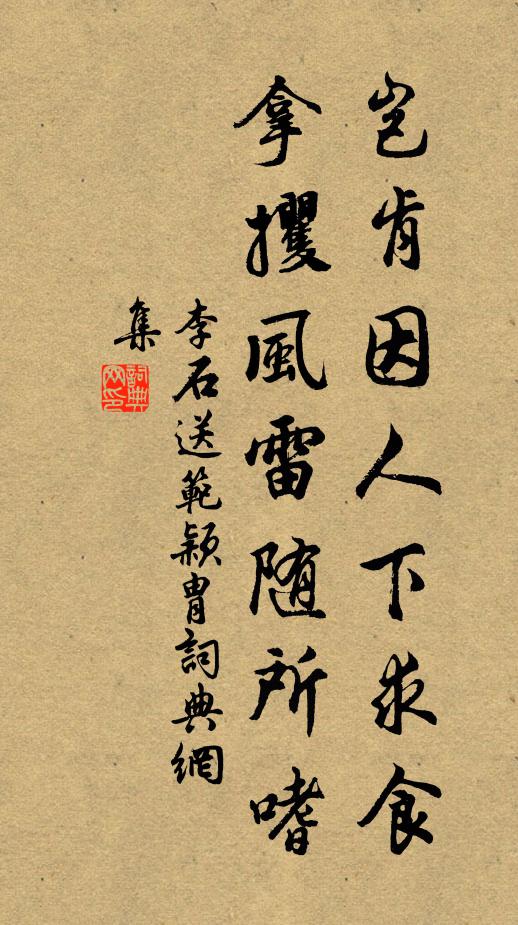 岂肯因人下求食
拿攫風雷随所嗜
李石送範潁胄詞典網
集
詞典
网印